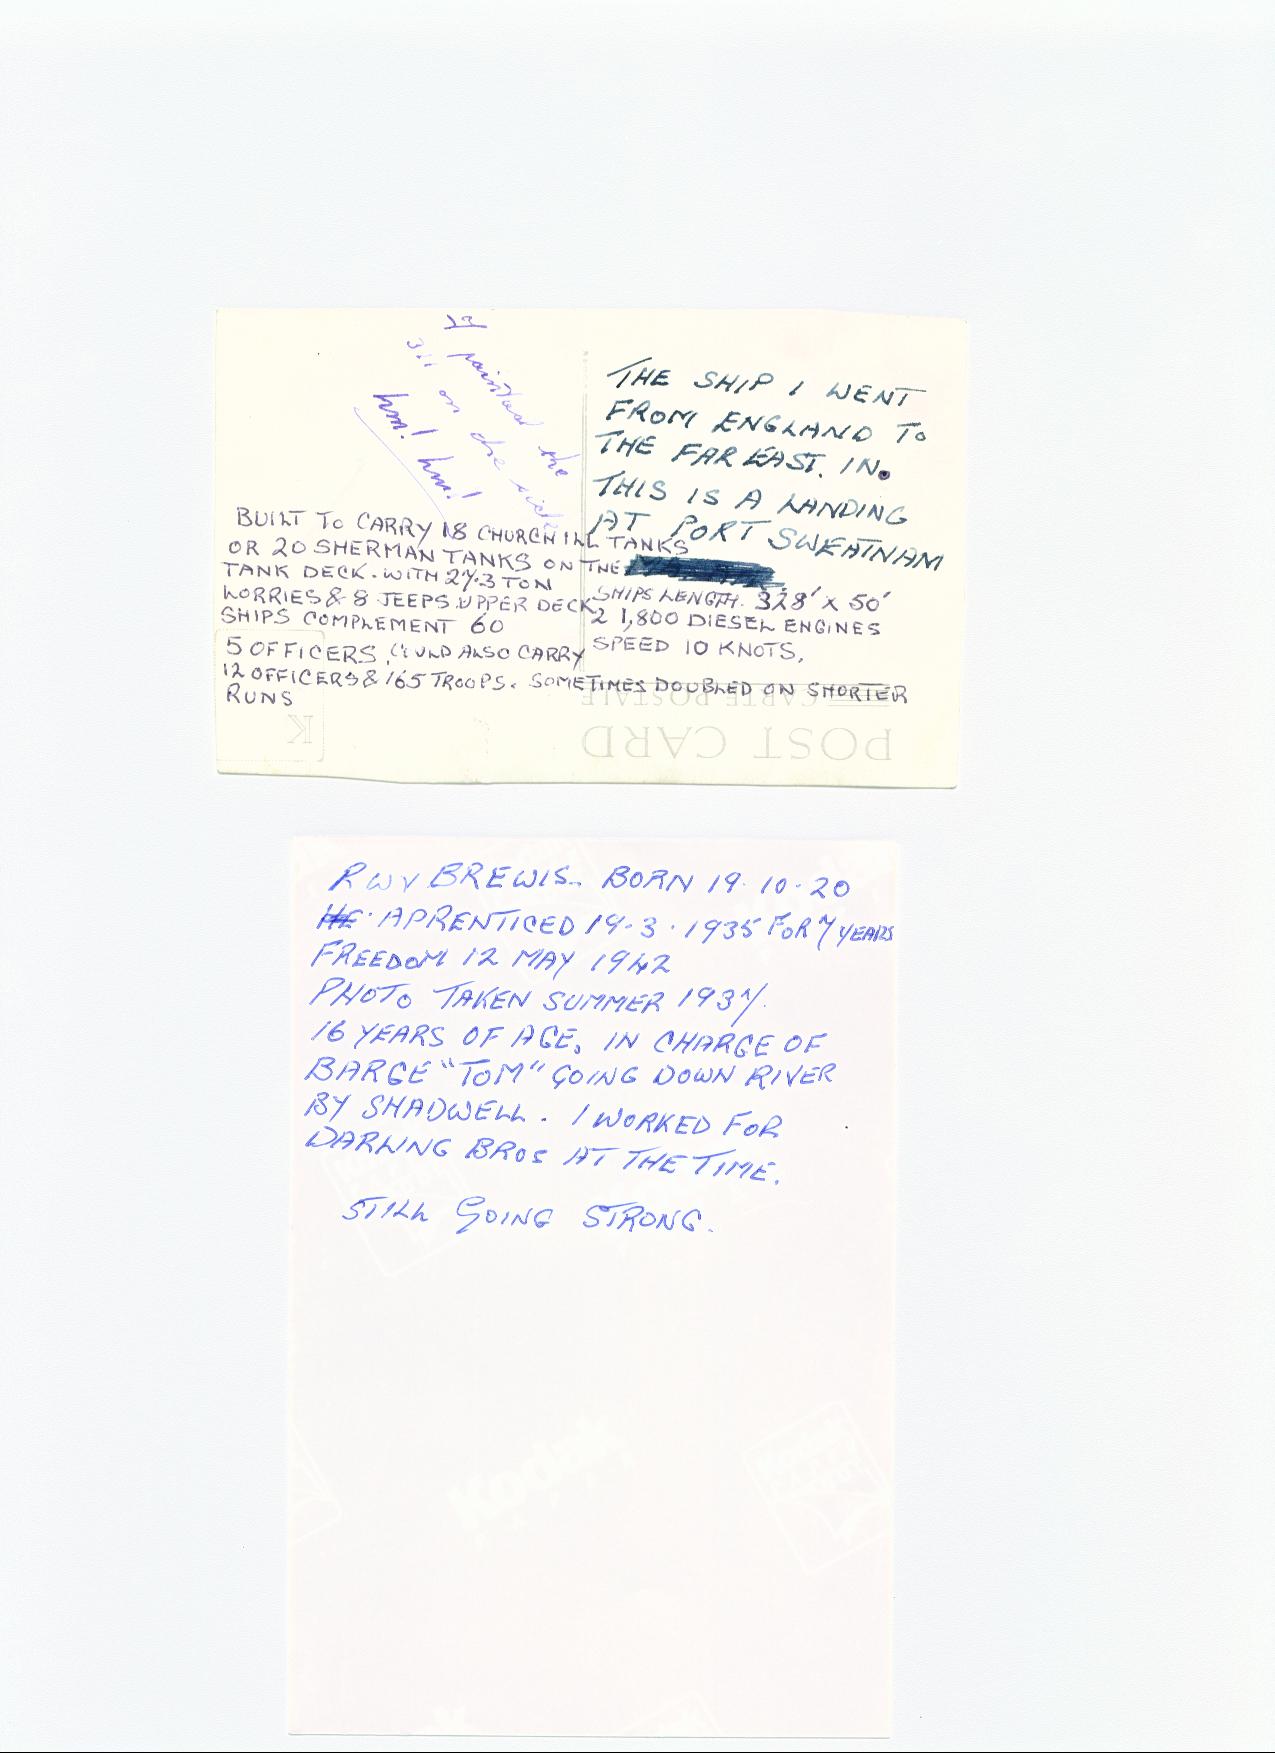 I painted the
311 on the side
hm! hm!
THE SHIP I WENT
FROM ENGLAND TO
THE FAR EAST. IN.
THIS IS A LANDING
AT PORT SWEATNAM
BUILT TO CARRY 18 CHURCHILL TANKS
OR 20 SHERMAN TANKS ON THE
TANK DECK. WITH 27.3 TON
LORRIES & 8 JEEPS UPPER DECK
SHIPS COMPLEMENT 60
5 OFFICERS, COULD ALSO CARRY
12 OFFICERS & 165 TROOPS. SOMETIMES DOUBLED ON SHORTER
RUNS
SHIPS LENGTH. 328' X 50'
2 1,800 DIESEL ENGINES
SPEED 10 KNOTS.
CARTE POSTALE
POST CARD
K
RWY BREWIS. BORN 19.10.20
HE. APRENTICED 19.3.1935 FOR 7 YEARS
FREEDOM 12 MAY 1942
PHOTO TAKEN SUMMER 1937.
16 YEARS OF AGE, IN CHARGE OF
BARGE "TOM" GOING DOWN RIVER
BY SHADWELL. I WORKED FOR
DARLING BROS AT THE TIME.
STILL GOING STRONG.
Kodak